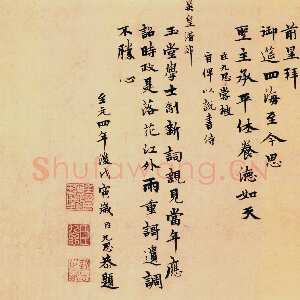 前星拜
御造四海至今思
聖主承平休養德如天
臣九思嘗被
旨俾以說書侍
英皇潛邸
玉堂學士創新詞親見當年應
詔時政是落花江外雨重調遺調
不勝心
至元四年歲戊寅歲臣九思恭題
Shufawang.CN